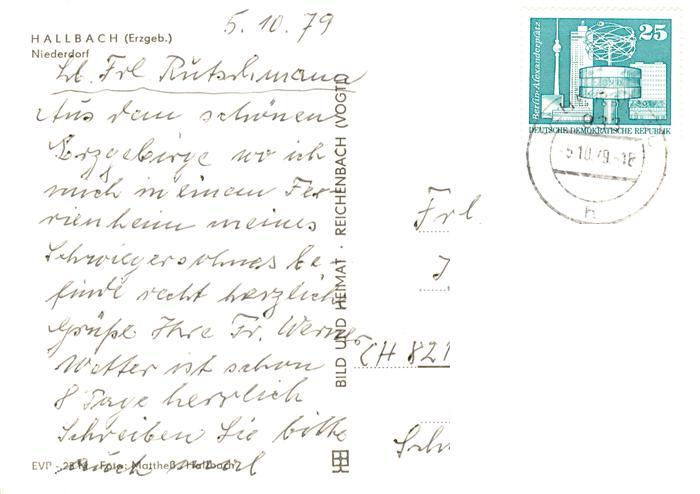 5.10.79
HALLBACH (Erzgeb.)
Niederdorf
Lb. Frl Rutschmann
Aus dem schönen
Erzgebirge wo ich
mich in einem Fe-
rienheim meines
Schwiegersohnes be-
finde recht herzlich
Grüße Ihre Fr. Werner
Wetter ist schon
8 Tage herrlich
Schreiben Sie bitte
auch mal
EVP - Foto: Mattheß, Hallbach
BILD UND HEIMAT · REICHENBACH (VOGTL)
25
Berlin-Alexanderplatz
DEUTSCHE DEMOKRATISCHE REPUBLIK
933
-5.10.79-18
h
Frl.
CH 821